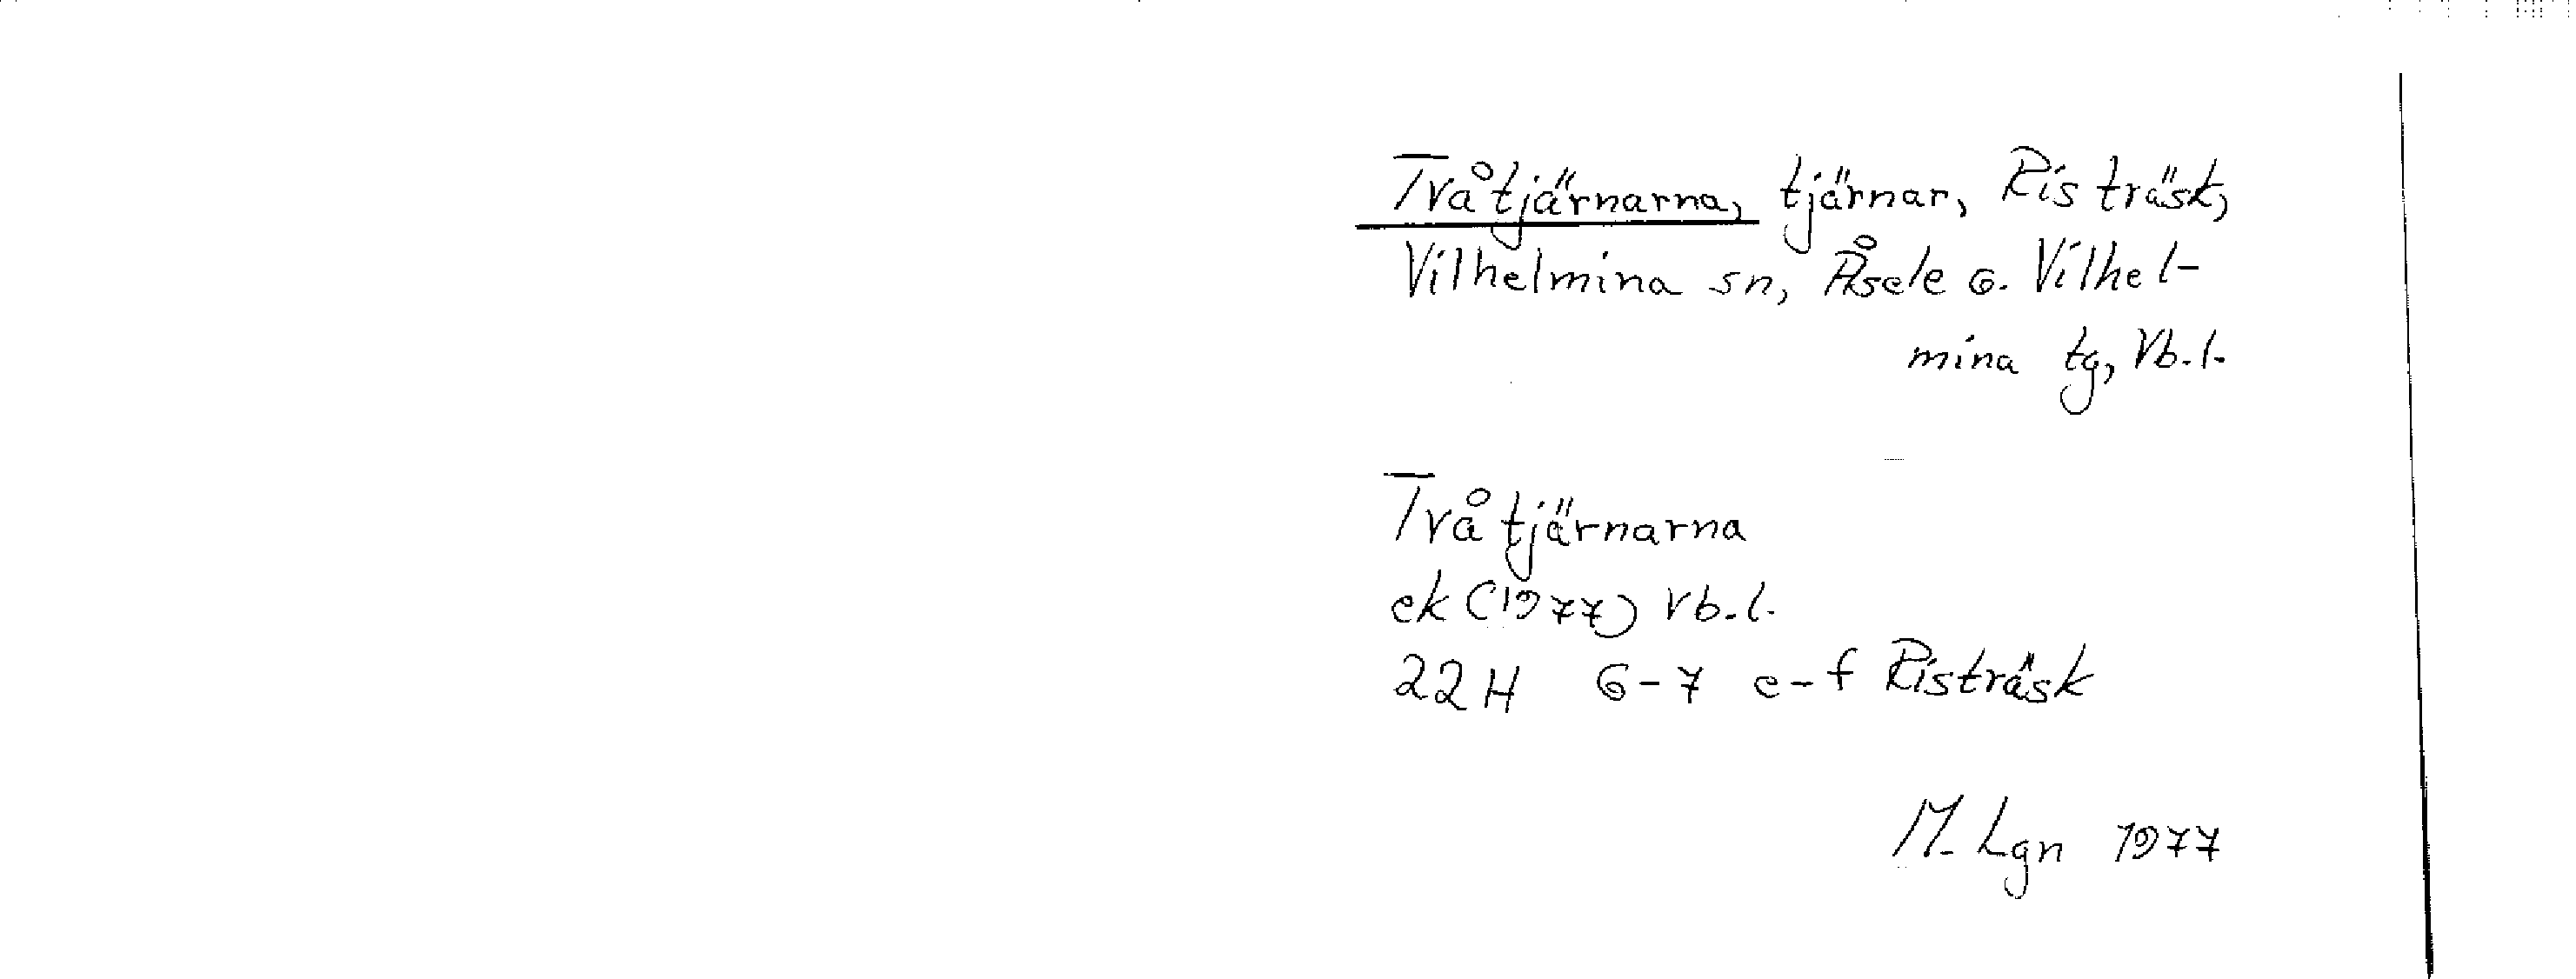 Tvåtjärnarna, tjärnar, Risträsk,
Vilhelmina sn, Åsele o. Vilhel-
mina tg, Vb.l.
Tvåtjärnarna
ek (1977) Vb.l.
22H 6-7 e-f Risträsk
M. Lgn 1977